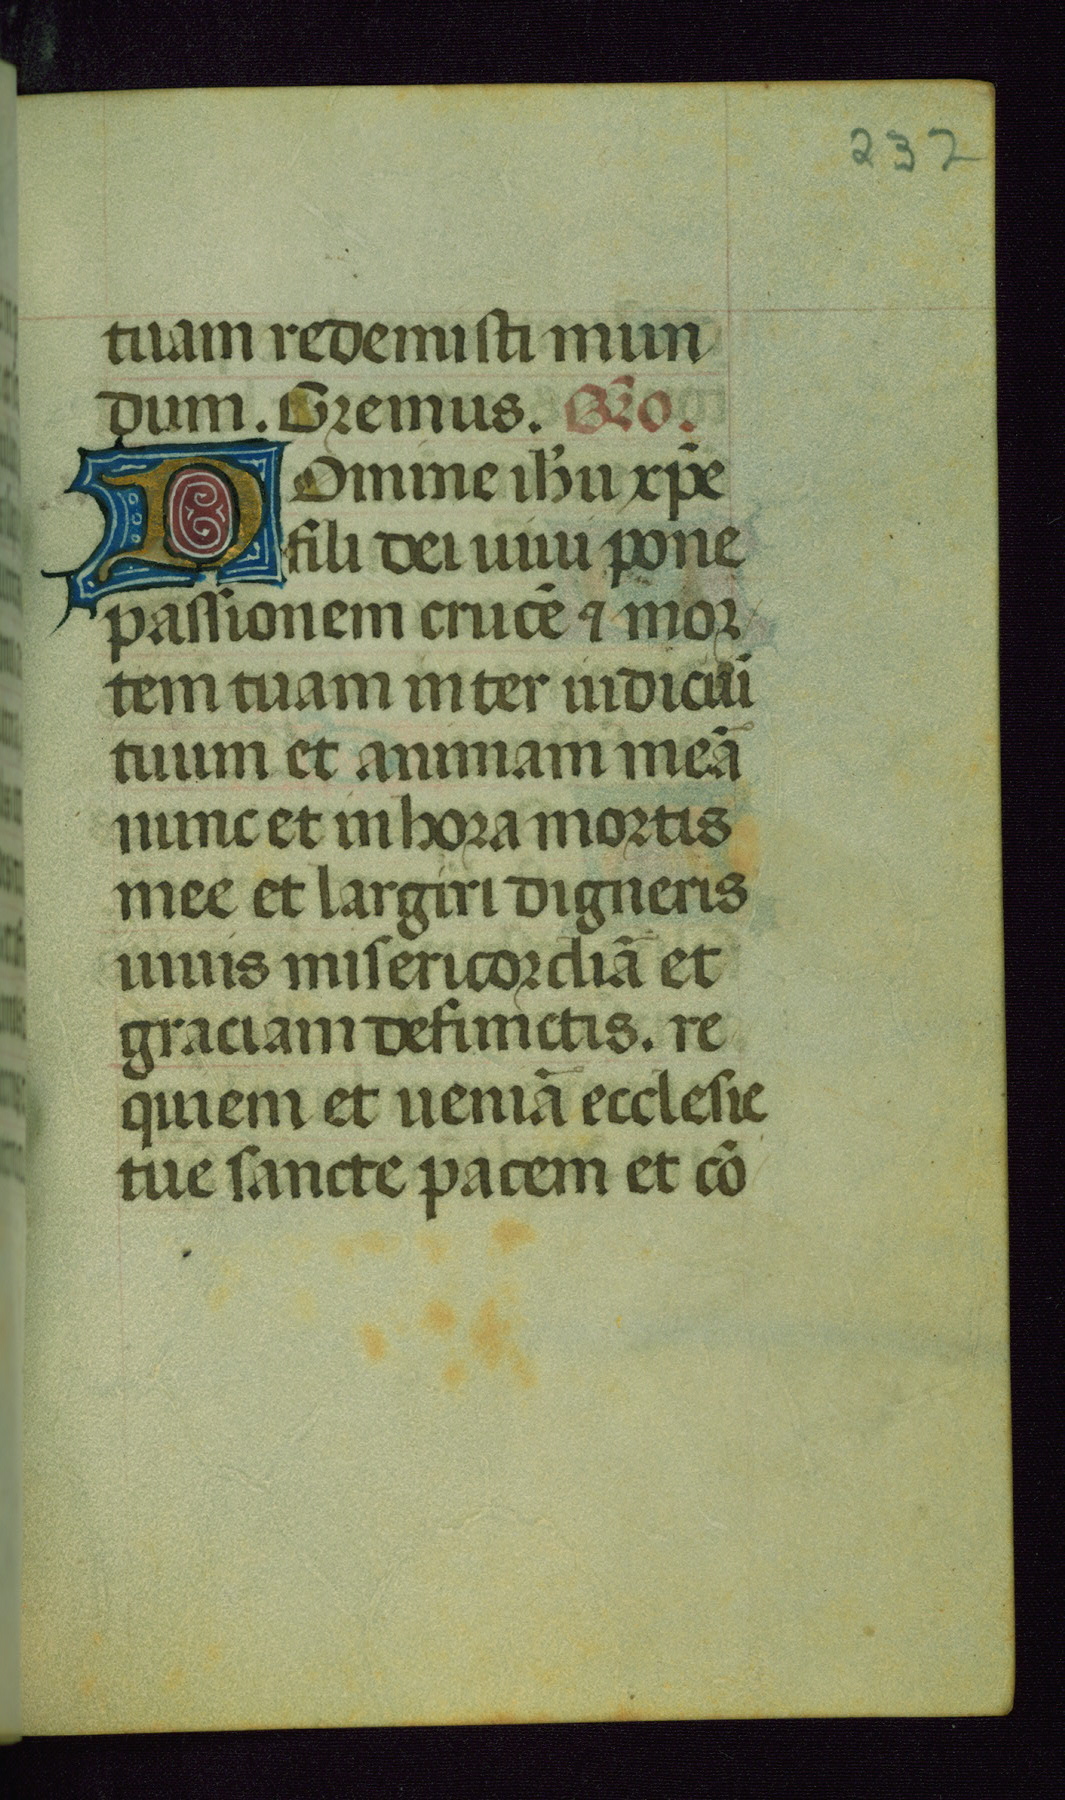 232
tuam redemisti mun
dum. Oremus. Oro.
DOmine ihu xp̄e
fili dei uiui pone
passionem crucē ⁊ mor
tem tuam inter iudiciū
tuum et animam meā
nunc et in hora mortis
mee et largiri digneris
uiuis misericordiā et
graciam defunctis. re
quiem et ueniā ecclesie
tue sancte pacem et cō